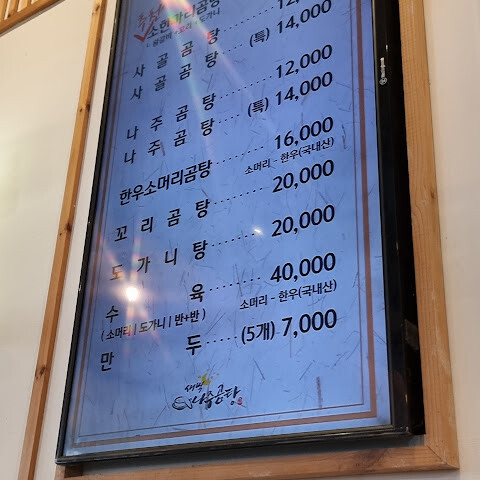 추천
소한마리곰탕
사 골 곰 탕
사 골 곰 탕 (특) 14,000
나 주 곰 탕 12,000
나 주 곰 탕 (특) 14,000
한우소머리곰탕 16,000
소머리 - 한우(국내산)
꼬 리 곰 탕 20,000
도 가 니 탕 20,000
수 육 40,000
( 소머리 | 도가니 | 반+반 ) 소머리 - 한우(국내산)
만 두 (5개) 7,000
새벽 나주곰탕